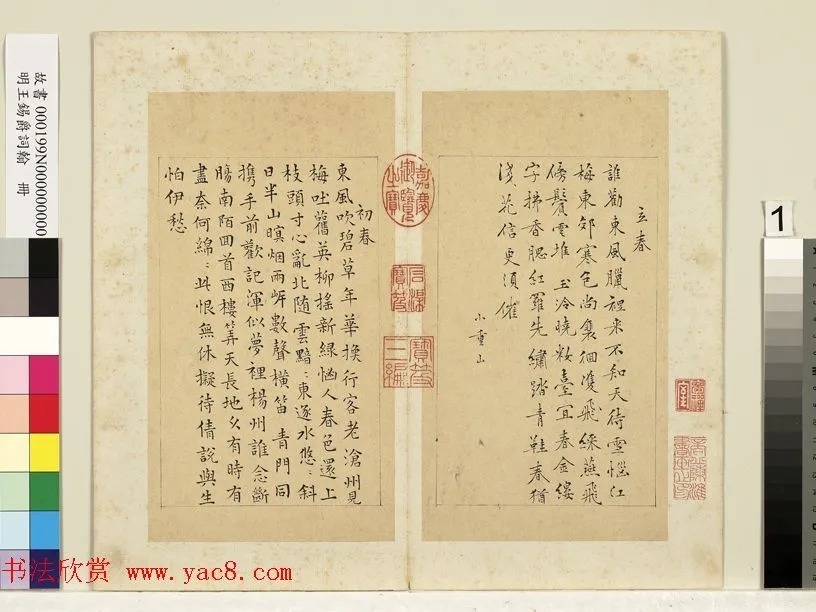 立春
誰勸東風臘裡来不知天待雪惱江
梅東郊寒色尚褱徊雙飛綵燕飛
傍鬢雲堆 玉冷曉粧臺宜春金縷
字拂香腮紅羅先繡踏青鞋春猶
淺花信更須催
小重山
初春
東風吹碧草年華換行客老滄州見
梅吐舊英柳搖新緑惱人春色還上
枝頭寸心亂北随雲黯:東逐水悠:斜
日半山暝烟兩岸數聲横笛 青門同
攜手前歡記渾似夢裡楊州誰念斷
腸南陌回首西樓筭天長地久有時有
盡奈何綿:此恨無休擬待倩説與生
怕伊愁
嘉慶御覽之寶
石渠寶笈
寶笈三編
故書 000199N000000000
明王錫爵詞翰 冊
1
书法欣赏 www.yac8.com